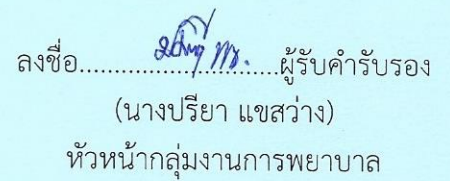 ลงชื่อ............................ผู้รับคำรับรอง
(นางปรียา แขสว่าง)
หัวหน้ากลุ่มงานการพยาบาล